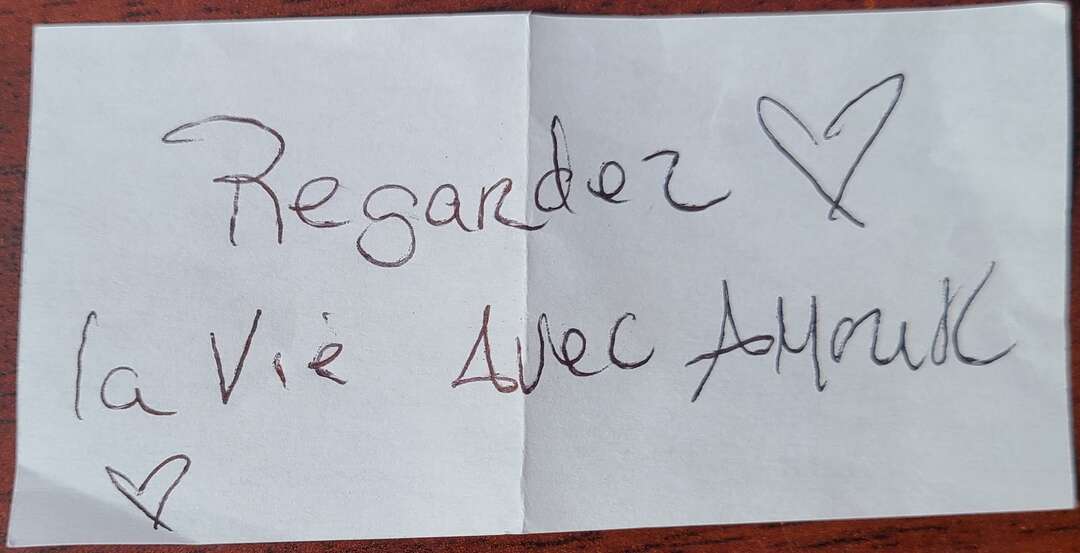 Regardez
la Vie Avec Amour